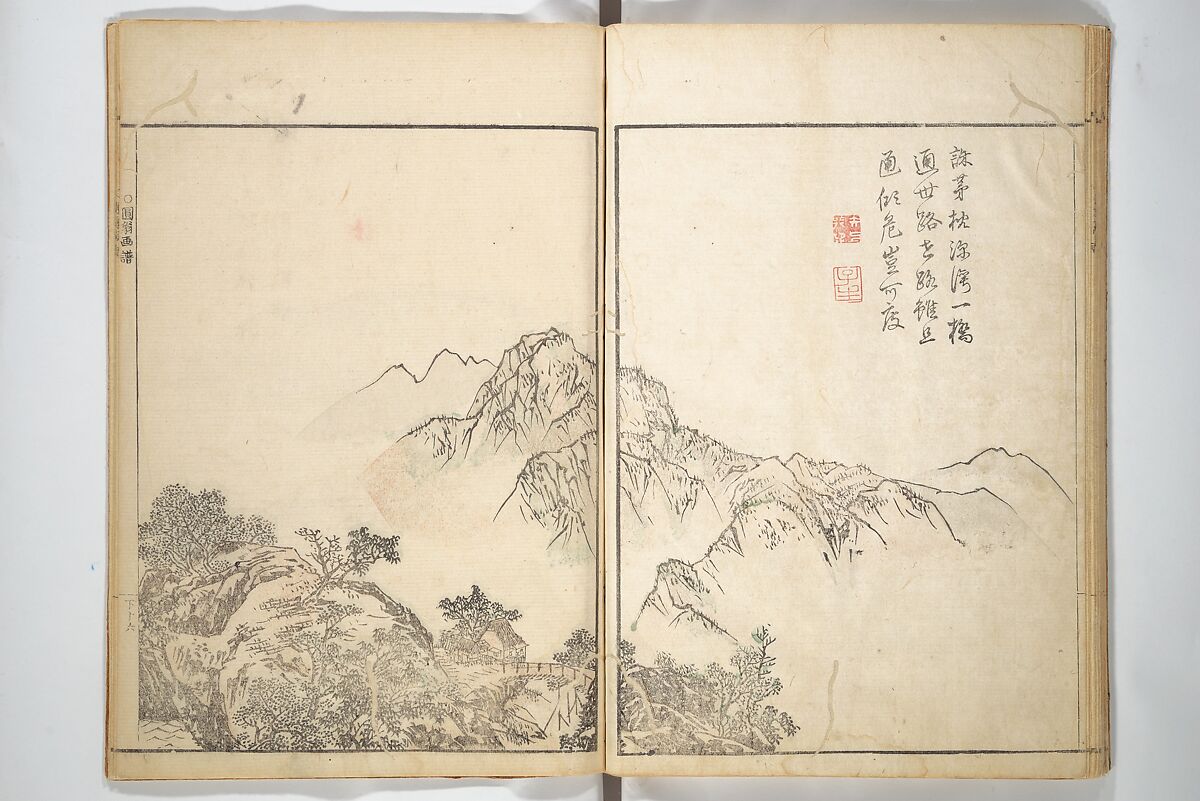 誅茅枕深澤一橋
通世路世路雖且
通傾危豈可度
○圓翁画譜
下ノ九